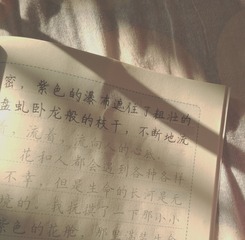 密，紫色的瀑布遮住了粗壮的
盘虬卧龙般的枝干，不断地流
着，流着，
花和人都会遇到各种各样
不幸，但是生命的长河是无
境的。我抚摸了一下那小小
紫色的花舱，那里